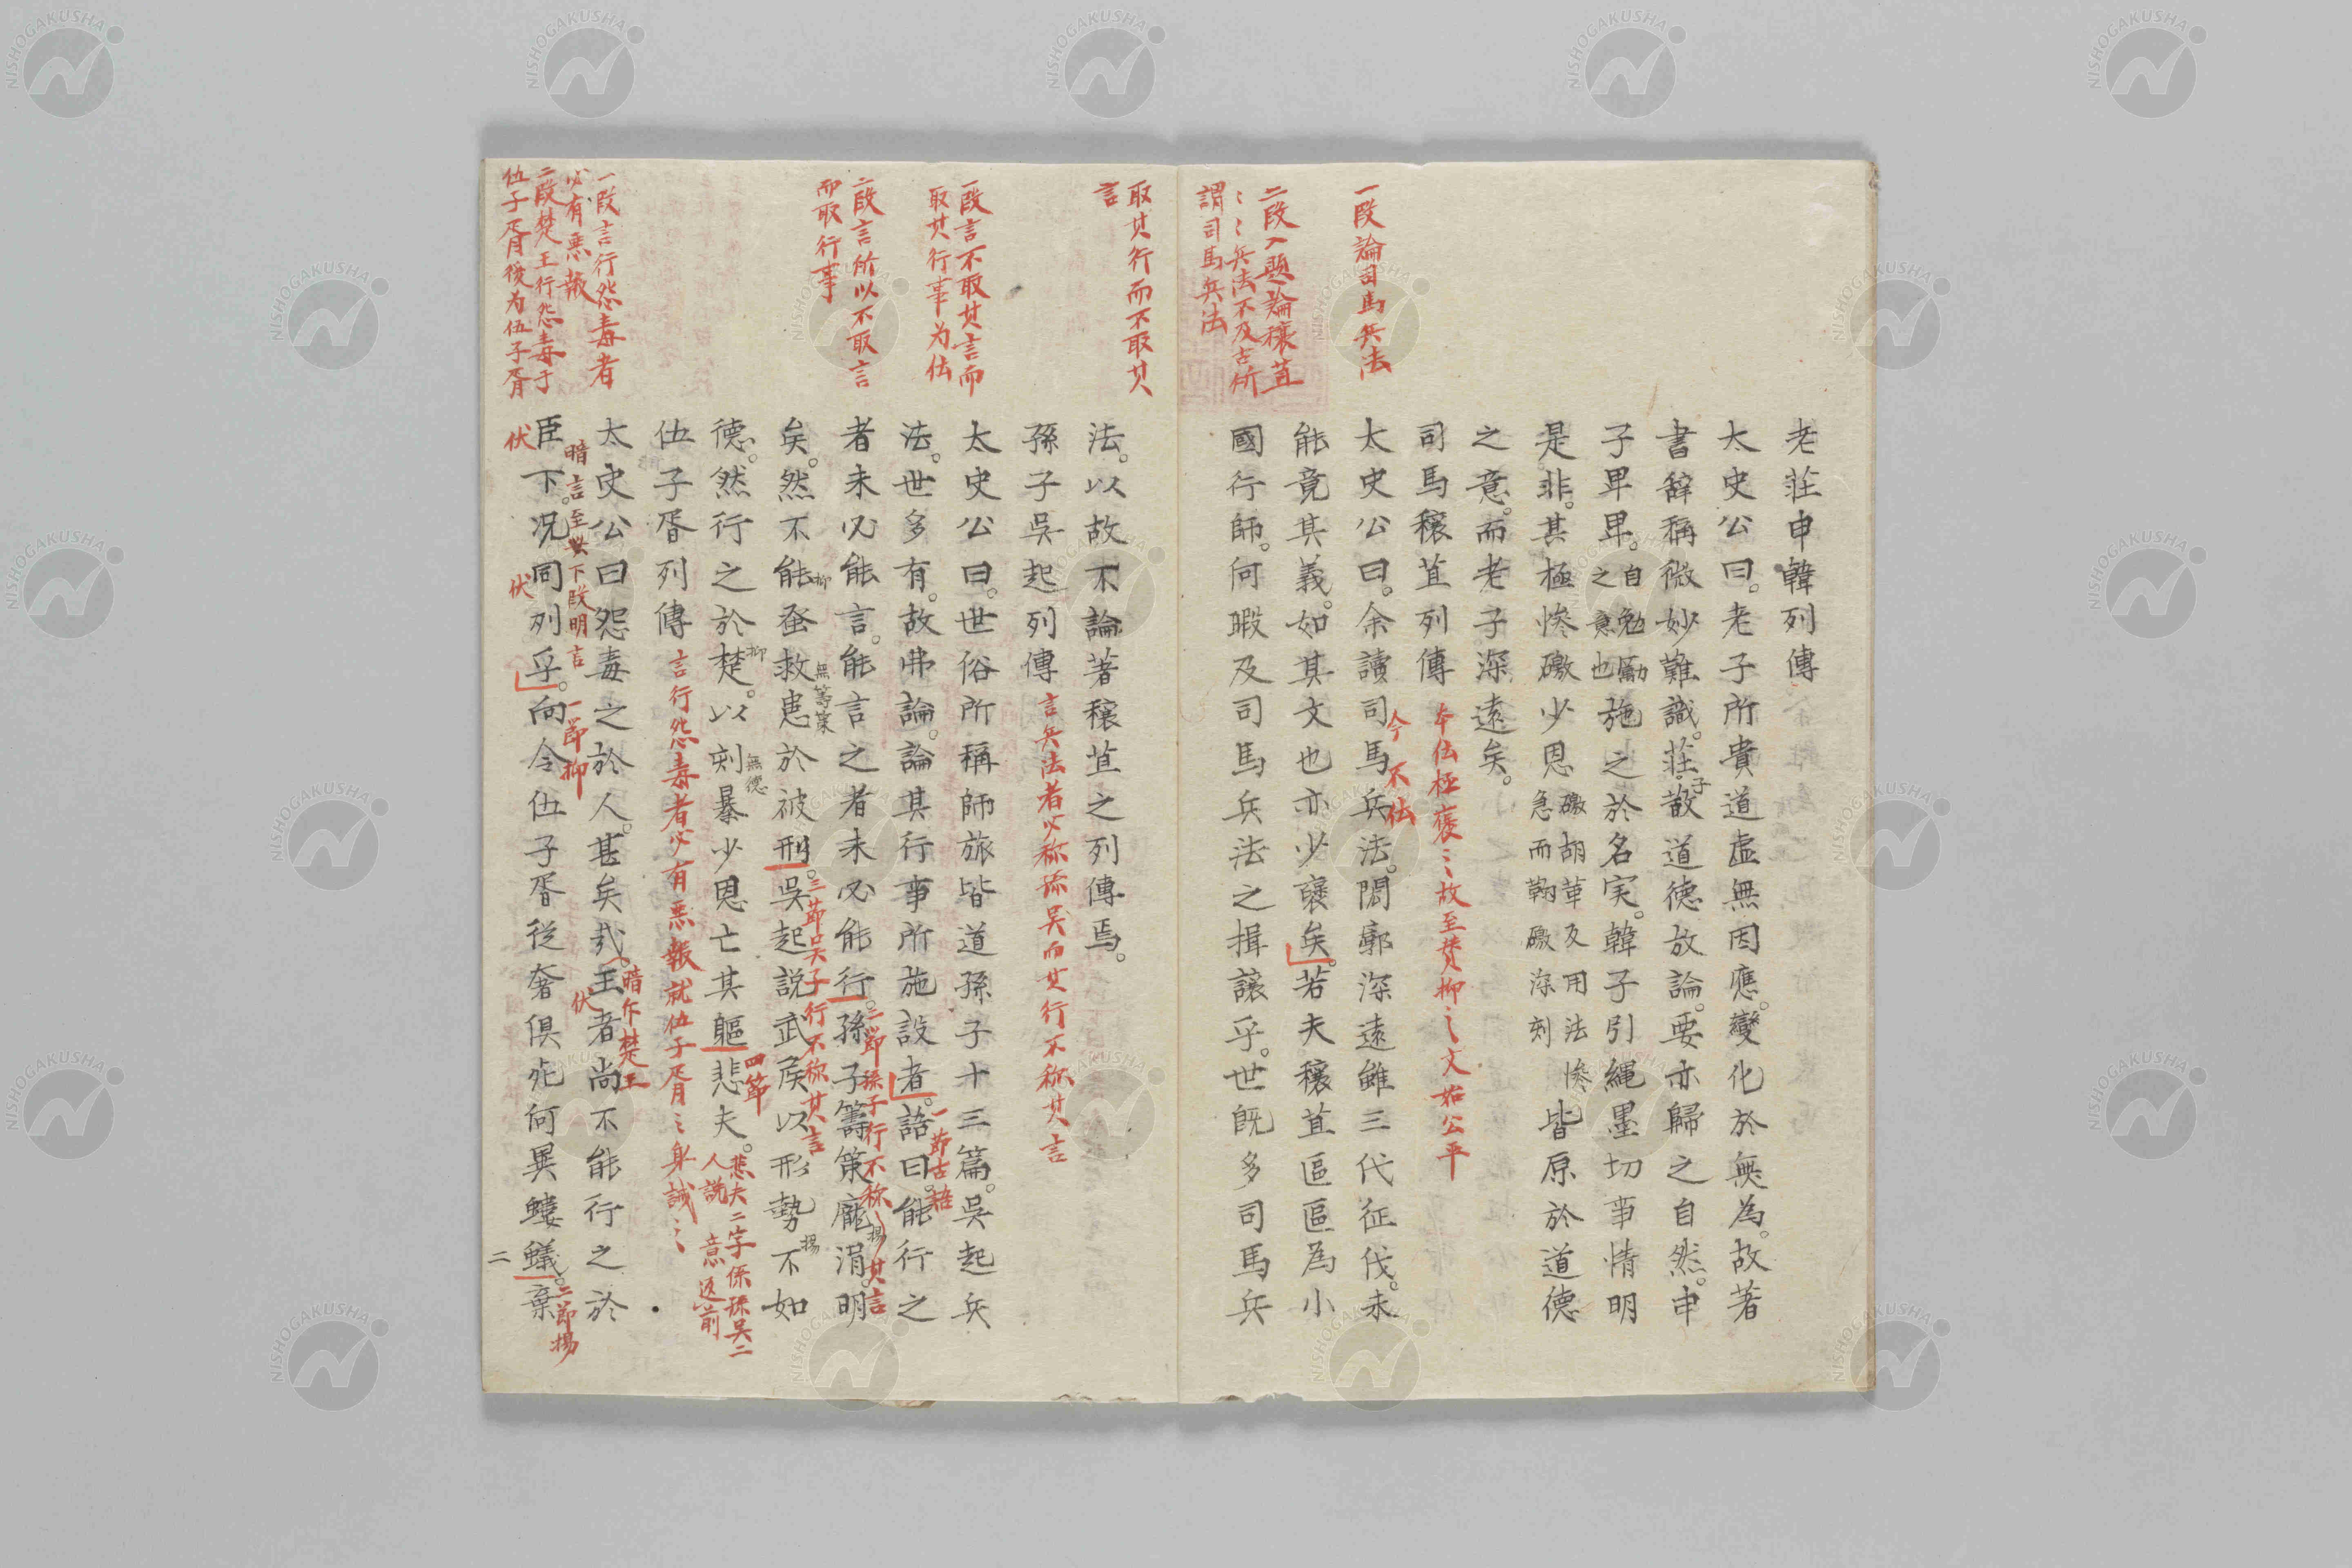 老莊申韓列傳
太史公曰。老子所貴道虛無因應。變化於無為。故著
書辭稱微妙難識。莊子散道德放論。要亦歸之自然。申
子卑卑。自勉勵之意也施之於名実。韓子引縄墨切事情明
是非。其極慘礉少恩礉胡革反用法慘急而鞫礉深刻皆原於道德
之意。而老子深遠矣。
司馬穰苴列傳
本伝極褒〻故至賛抑〻文始公平
一段論司馬兵法
太史公曰。余讀司馬兵法。閎廓深遠雖三代征伐。未
今不伝
能竟其義。如其文也亦少襃矣。若夫穰苴區區為小
二段入題論穰苴
〻〻兵法不及古所
謂司馬兵法
國行師。何暇及司馬兵法之揖讓乎。世既多司馬兵
法。以故不論著穰苴之列傳焉。
取其行而不取其
言
孫子吳起列傳
言兵法者必称孫吳而其行不称其言
一段言不取其言而
取其行事为伝
太史公曰。世俗所稱師旅皆道孫子十三篇。吳起兵
法。世多有。故弗論。論其行事所施設者。語曰。能行之
一節古語
二段言所以不取言
而取行事
者未必能言。能言之者未必能行。孫子籌策龐涓。明
二節孫子行不称其言
揚
矣。然不能蚤救患於被刑。吳起說武侯以形勢不如
抑
無籌策
三節吳子行不称其言
揚
德。然行之於楚。以刻暴少恩亡其軀悲夫。
抑
無德
四節
悲夫二字係孫吳二
人説
意返前
伍子胥列傳
言行怨毒者必有惡報就伍子胥〻身誡〻
一段言行怨毒者
必有悪報
二段楚王行怨毒于
伍子胥後为伍子胥
太史公曰怨毒之於人。甚矣哉。王者尚不能行之於
暗斥楚王
伏
暗言至此下段明言
一節抑
臣下。况同列乎。向令伍子胥從奢俱死何異螻蟻。棄
伏
伏
二節揚
二